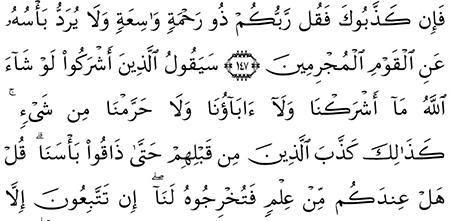 فَإِن كَذَّبُوكَ فَقُل رَّبُّكُمْ ذُو رَحْمَةٍ وَٰسِعَةٍ وَلَا يُرَدُّ بَأْسُهُۥ
عَنِ ٱلْقَوْمِ ٱلْمُجْرِمِينَ ﴿١٤٧﴾ سَيَقُولُ ٱلَّذِينَ أَشْرَكُوا۟ لَوْ شَآءَ
ٱللَّهُ مَآ أَشْرَكْنَا وَلَآ ءَابَآؤُنَا وَلَا حَرَّمْنَا مِن شَىْءٍ ۚ
كَذَٰلِكَ كَذَّبَ ٱلَّذِينَ مِن قَبْلِهِمْ حَتَّىٰ ذَاقُوا۟ بَأْسَنَا ۗ قُلْ
هَلْ عِندَكُم مِّنْ عِلْمٍ فَتُخْرِجُوهُ لَنَآ ۖ إِن تَتَّبِعُونَ إِلَّا